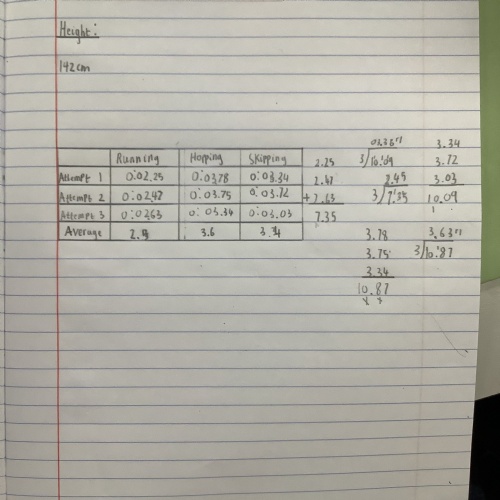 Height:
142cm
Running Hopping Skipping
Attempt 1 0:02.25 0:03.78 0:03.34
Attempt 2 0:02.47 0:03.75 0:03.72
Attempt 3 0:02.63 0:03.34 0:03.03
Average 3.6
2.25
2.47
+ 2.63
7.35
2.45
3.78
3.75
3.34
10.87
3.34
3.72
3.03
10.09